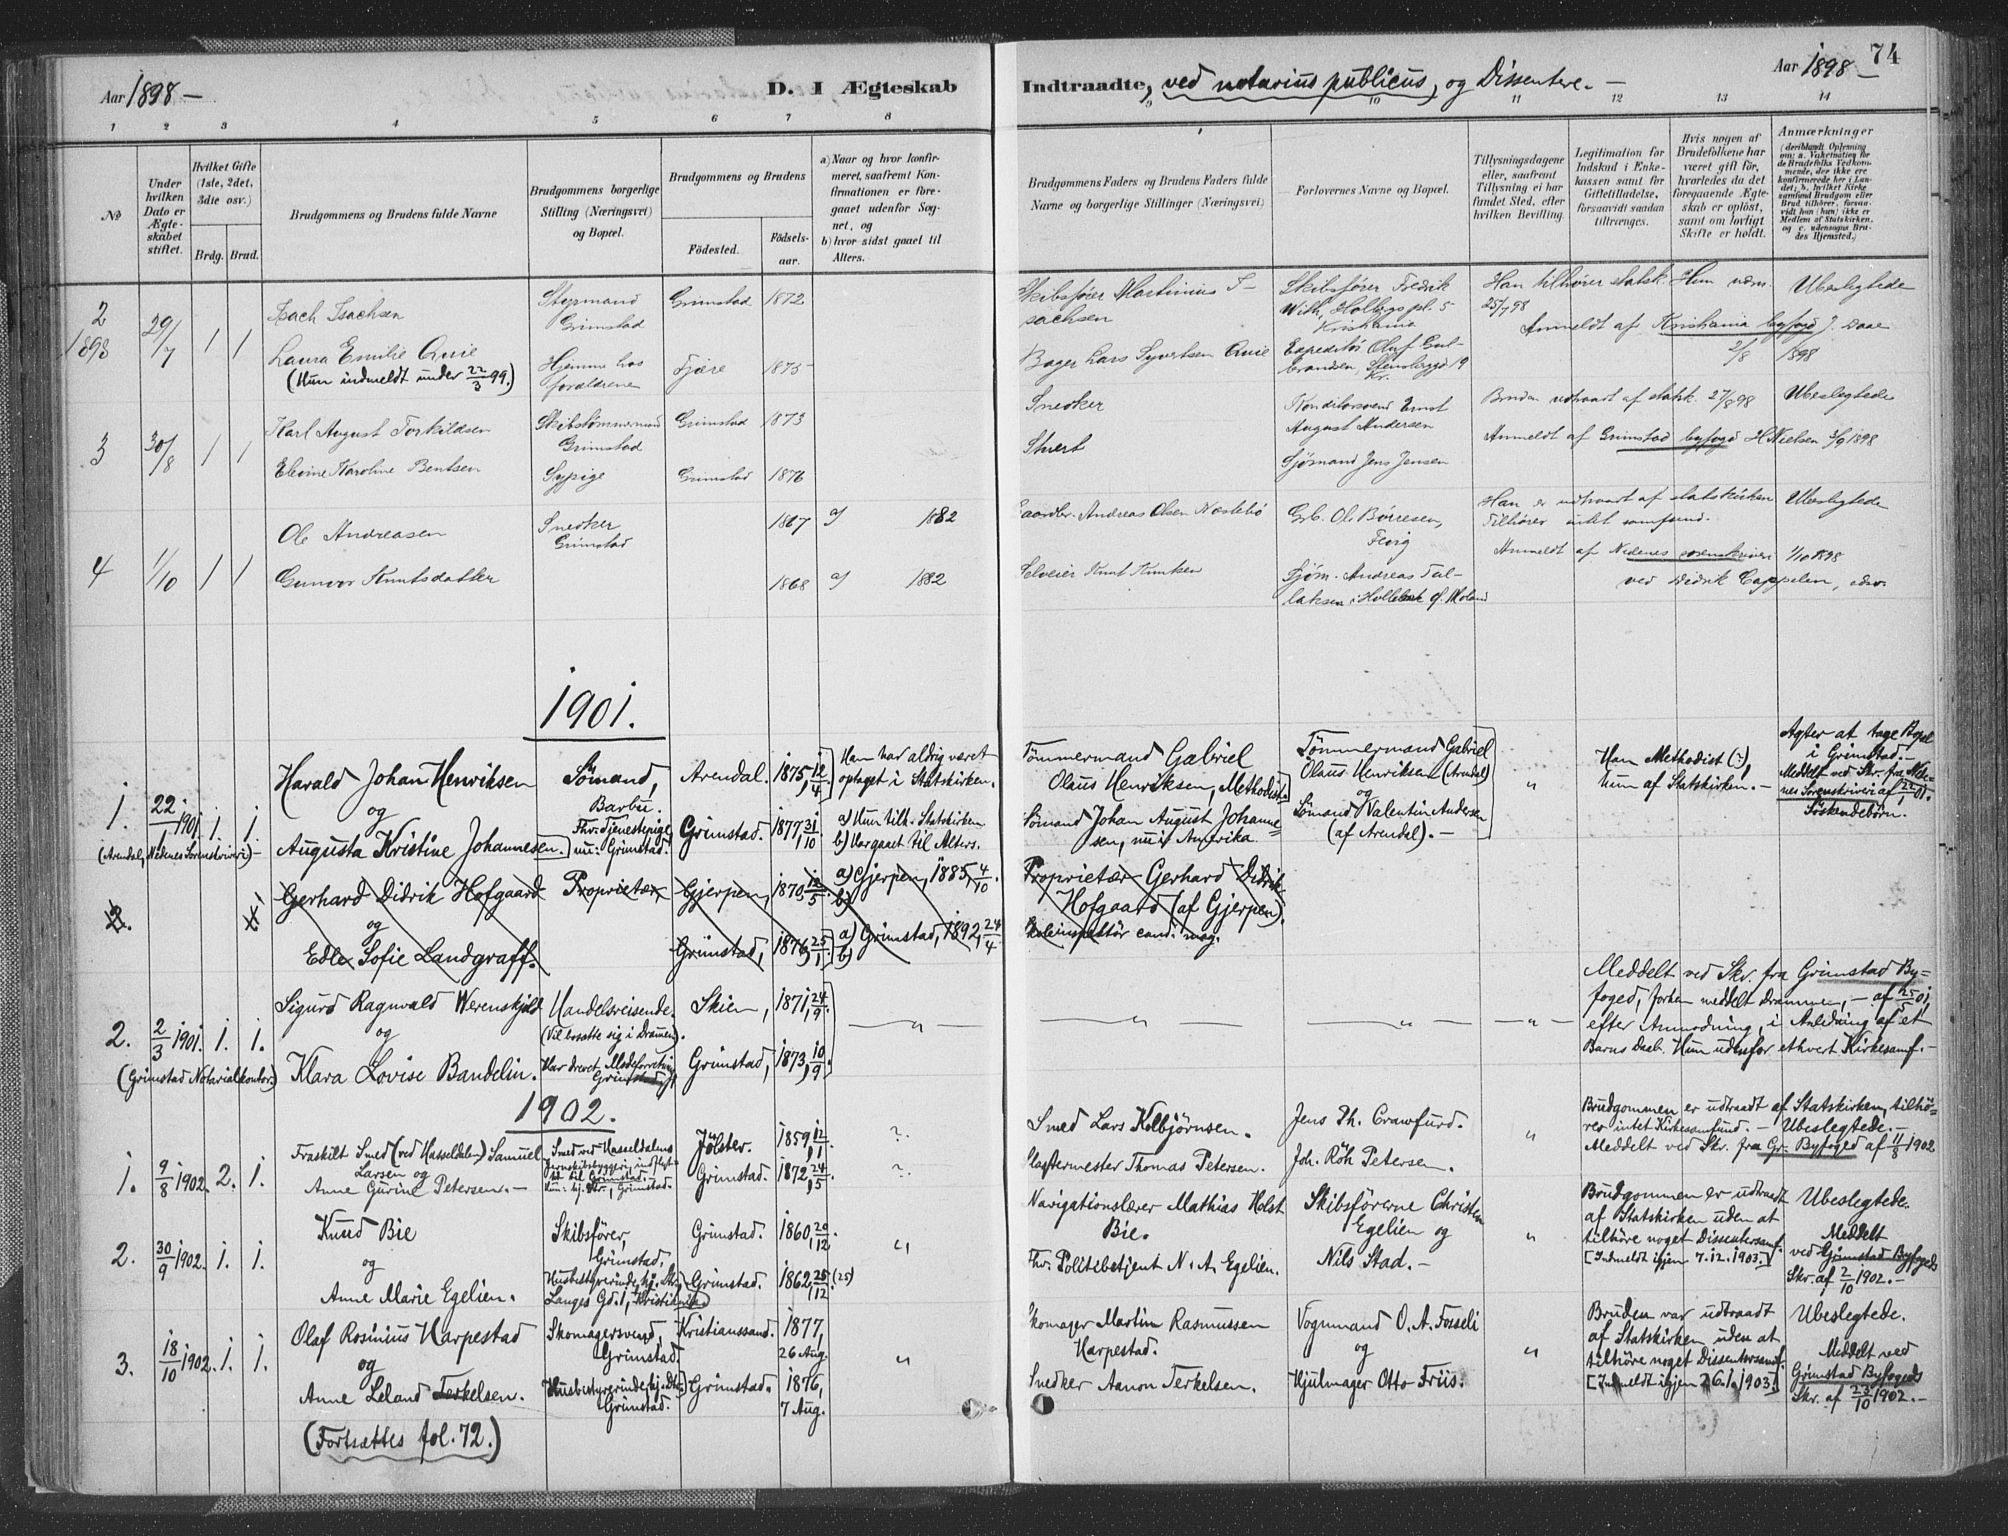 74
Aar 1898 —
D. I Ægteskab
Indtraadte, ved notarius publicus, og Dissentere. —
Aar 1898 —
1 2 3 4 5 6 7 8
9 10 11 12 13 14
No
Under hvilken Dato er Ægteskabet stiftet.
Hvilket Gifte (1ste, 2det, 3die osv.)
Brdg. Brud.
Brudgommens og Brudens fulde Navne
Brudgommens borgerlige Stilling (Næringsvei) og Bopæl.
Brudgommens og Brudens
Födested.
Födsels-aar.
a) Naar og hvor konfirmeret, saafremt Konfirmationen er foregaaet udenfor Sognet, og
b) hvor sidst gaaet til Alters.
Brudgommens Faders og Brudens Faders fulde Navne og borgerlige Stillinger (Næringsvei)
Forlovernes Navne og Bopæl.
Tillysningsdagene eller, saafremt Tillysning ei har fundet Sted, efter hvilken Bevilling.
Legitimation for Indskud i Enkekassen samt for Giftetilladelse, forsaavidt saadan tiltrænges.
Hvis nogen af Brudefolkene har været gift för, hvorledes da det foregaaende Ægteskab er oplöst, samt om lovligt Skifte er holdt.
Anmærkninger
2
1898
29/7 1 1
Isach Isachsen
Styrmand Grimstad
Grimstad 1872
Skibsfører Martinius Isachsen
Skibsfører Fredrik With, Holbergs pl. 5 Kristiania
Han tilhører statsk. Hun
25/7 98
Ubeslegtede
Laura Emilie Qvie
(Hun indmeldt under 22/3 99.)
Hjemme hos forældrene
Fjære 1875
Bager Lars Syvertsen Qvie
Expeditør Oluf Gulbrandsen, Stensberggd 19 Kr.
Anmeldt af Kristiania byfogd J. Daae
2/8 1898
3
30/8 1 1
Karl August Torkildsen
Skibstømmermand Grimstad
Grimstad 1873
Snedker
Konditorsvend Ernst August Andersen
Bruden udtraadt af statsk. 27/8 98
Ubeslegtede
Elevine Karoline Bentsen
Sypige
Grimstad 1876
Stuert
Sjømand Jens Jensen
Anmeldt af Grimstad byfogd H Nielsen 3/9 1898
4
1/10 1 1
Ole Andreasen
Snedker Grimstad
1867 a) 1882
Gaardbr. Andreas Olsen
Grb. Ole Børresen, Fevig
Han er udtraadt af statskirken
Tilhører intet samfund.
Ubeslegtede
Gunvor Knutsdatter
1868 a) 1882
Selveier Knut Knutsen
Sjøm. Andreas Tallaksen i Holle
Anmeldt af Nedenes sorenskriveri 1/10 1898
ved Didrik Cappelen, edsv.
1901.
1. 22/1 1901. 1. 1.
(Arendal, Nedenes Sorenskriveri) —
Harald Johan Henriksen
og
Augusta Kristine Johannesen.
Sömand, Barbu.
Fhv. Tjenestepige nu: Grimstad.
Arendal. 1875, 12/4
Grimstad. 1877, 31/10
Han har aldrig været optaget i Statskirken.
a) Hun tilh. Statskirken
b) Uargaaet til Alters.
Tömmermand Gabriel Olaus Henriksen, Methodist.
Sömand Johan August Johannesen, nu i Amerika.
Tömmermand Gabriel Olaus Henriksen (Arendal)
og
Sömand Valentin Andersen (af Arendal). —
"
Han Methodist (?), hun af Statskirken. —
Agter at tage Bopel i Grimstad. —
Meddelt ved Skr. fra Nedenes Sorenskriveri af 22/1 01.
Söskendebörn.
2.
Gerhard Didrik Hofgaard
og
Edle Sofie Landgraff.
Proprietær
Gjerpen, 1870, 12/5
Grimstad, 1876, 25/1
a) Gjerpen, 1885, 4/10.
b)
a) Grimstad, 1892, 24/4
b)
Proprietær Gerhard Didrik Hofgaard (af Gjerpen).
Skoleinspektör cand. mag.
2. 2/3 1901. 1. 1.
(Grimstad Notarialkontor.)
Sigurd Ragnvald Werenskjold
og
Klara Lovise Bandelin.
Handelsreisende.
(Vil bosætte sig i Dramen).
Har drevet Modeforretning, Grimstad
Skien, 1871, 24/9
Grimstad, 1873, 10/9
— " — — " — — " — — " —
Meddelt ved Skr. fra Grimstad Byfoged, forhen meddelt Drammen, — af 25/5 01,
efter Anmodning, i Anledning af et
Barns Daab. Hun udenfor ethvert Kirkesamf. —
1902.
1. 9/8 1902. 2. 1.
Fraskilt Smed (ved Hasseldalen) Samuel Larsen og
Anne Gurine Petersen. —
Smed ved Hasseldalens Jernskibsbyggeri, indflyttet til Grimstad.
Hun: hj. Str., Grimstad.
Jölster. 1859, 12/1
Grimstad. 1872, 24/5
?.
?.
Smed Lars Kolbjörnsen.
Plastermester Thomas Petersen.
Jens Th. Crawfurd.
Joh. Röh Petersen.
"
Brudgommen er udtraadt af Statskirken, tilhörer intet Kirkesamfund. — Ubeslegtede. —
Meddelt ved Skr. fra Gr. Byfoged af 11/8 1902
2. 30/9 1902. 1. 1.
Knud Bie
og
Anne Marie Egelien.
Skibsförer, Grimstad.
Husbestyrerinde, hj. Str. Langes Gd. 1, Kristiania
Grimstad. 1860, 20/12
Grimstad. 1862, 25/12. (25)
"
Navigationslærer Mathias Holst Bie.
Fhv. Politibetjent N. A. Egelien.
Skibsförerne Christen Egelien og
Nils Stad. —
"
Brudgommen er udtraadt af Statskirken uden at tilhöre noget Dissentersamf.
[Indmeldt igjen 7.12.1903.]
Ubeslegtede.
Meddelt ved Grimstad Byfogeds Skr. af 2/10 1902. —
3. 18/10 1902. 1. 1.
Olaf Rosinius Harpestad
og
Anne Leland Terkelsen.
Skomagersvend, Grimstad.
Husbestyrerinde, hj. Dtr. Grimstad.
Kristianssand. 1877, 26 Aug.
Grimstad. 1876, 7 Aug.
"
Skomager Martin Rasmussen Harpestad.
Snedker Aanon Terkelsen.
Vognmand O. A. Fosseli
og
Hjulmager Otto Friis.
"
Bruden var udtraadt af Statskirken uden at tilhöre noget Dissentersamf.
[Indmeldt igjen 26.1.1903.]
Ubeslegtede.
Meddelt ved Grimstad Byfogeds Skr. af 23/10 1902. —
(Fortsættes fol. 72.)